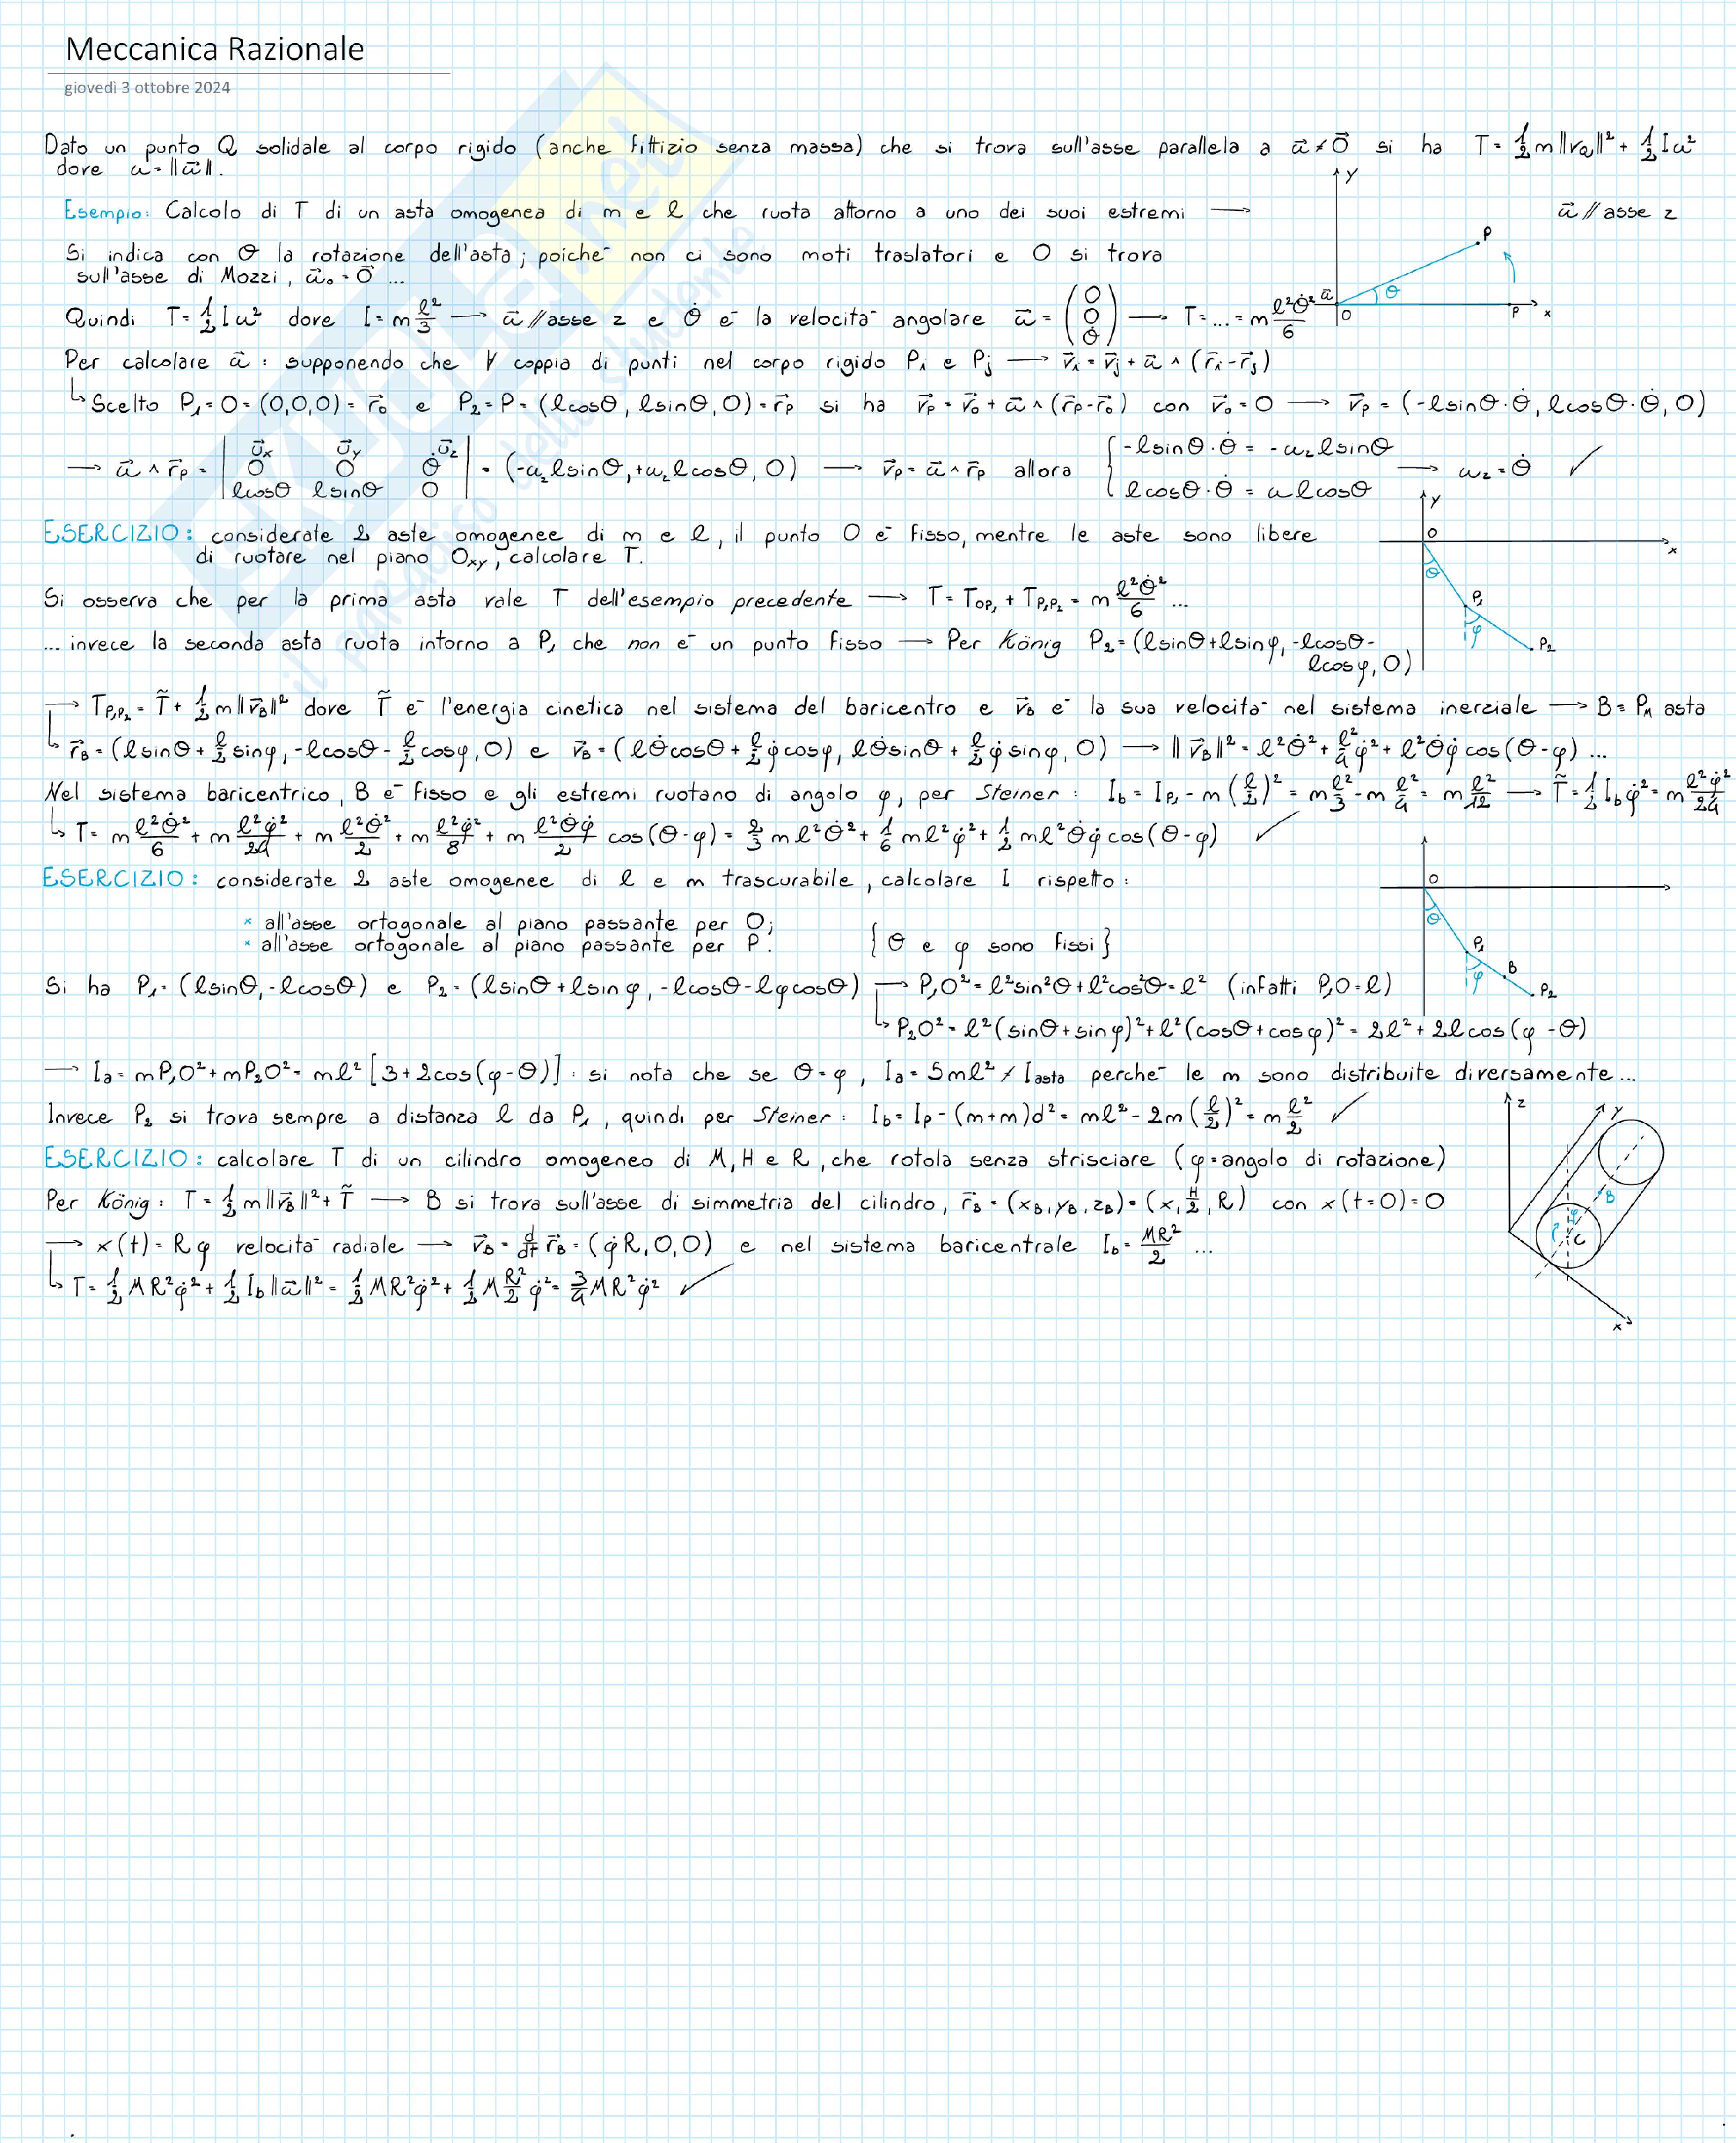 Meccanica Razionale
giovedì 3 ottobre 2024
Dato un punto Q solidale al corpo rigido (anche fittizio senza massa) che si trova sull'asse parallela a ω⃗ ≠ 0⃗ si ha T = ½ m ||v_Q||² + ½ I ω²
dove ω = ||ω⃗||.
Esempio: Calcolo di T di un asta omogenea di m e ℓ che ruota attorno a uno dei suoi estremi ⟶ ω⃗ // asse z
Si indica con θ la rotazione dell'asta; poiché non ci sono moti traslatori e O si trova
sull'asse di Mozzi, ω⃗₀ = 0⃗ ...
Quindi T = ½ I ω² dove I = m ℓ²/3 ⟶ ω⃗ // asse z e θ̇ è la velocità angolare ω⃗ = (0 0 θ̇) ⟶ T = ... = m ℓ²θ̇²/6
Per calcolare ω⃗ : supponendo che ∀ coppia di punti nel corpo rigido Pᵢ e Pⱼ ⟶ v⃗ᵢ = v⃗ⱼ + ω⃗ ∧ (r⃗ᵢ - r⃗ⱼ)
↳ Scelto P₁ = O = (0,0,0) = r⃗₀ e P₂ = P = (ℓcosθ, ℓsinθ, 0) = r⃗_P si ha v⃗_P = v⃗₀ + ω⃗ ∧ (r⃗_P - r⃗₀) con v⃗₀ = 0 ⟶ v⃗_P = (-ℓsinθ·θ̇, ℓcosθ·θ̇, 0)
⟶ ω⃗ ∧ r⃗_P = | u⃗x u⃗y u⃗z ; 0 0 θ̇ ; ℓcosθ ℓsinθ 0 | = (-ω_z ℓsinθ, +ω_z ℓcosθ, 0) ⟶ v⃗_P = ω⃗ ∧ r⃗_P allora { -ℓsinθ·θ̇ = -ω_z ℓsinθ ; ℓcosθ·θ̇ = ωℓcosθ ⟶ ω_z = θ̇ ✓
ESERCIZIO: considerate 2 aste omogenee di m e ℓ, il punto O è fisso, mentre le aste sono libere
di ruotare nel piano Oxy, calcolare T.
Si osserva che per la prima asta vale T dell'esempio precedente ⟶ T = T_OP₁ + T_P₁P₂ = m ℓ²θ̇²/6 ...
... invece la seconda asta ruota intorno a P₁ che non è un punto fisso ⟶ Per König P₂ = (ℓsinθ+ℓsinφ, -ℓcosθ-
ℓcosφ, 0)
⟶ T_P₁P₂ = T̃ + ½ m ||v⃗_B||² dove T̃ è l'energia cinetica nel sistema del baricentro e v⃗_B è la sua velocità nel sistema inerziale ⟶ B = P_M asta
↳ r⃗_B = (ℓsinθ + ℓ/2 sinφ, -ℓcosθ - ℓ/2 cosφ, 0) e v⃗_B = (ℓθ̇cosθ + ℓ/2 φ̇cosφ, ℓθ̇sinθ + ℓ/2 φ̇sinφ, 0) ⟶ ||v⃗_B||² = ℓ²θ̇² + ℓ²/4 φ̇² + ℓ²θ̇φ̇ cos(θ-φ) ...
Nel sistema baricentrico, B è fisso e gli estremi ruotano di angolo φ, per Steiner: I_b = I_P₁ - m(ℓ/2)² = m ℓ²/3 - m ℓ²/4 = m ℓ²/12 ⟶ T̃ = ½ I_b φ̇² = m ℓ²φ̇²/24
↳ T = m ℓ²θ̇²/6 + m ℓ²φ̇²/24 + m ℓ²θ̇²/2 + m ℓ²φ̇²/8 + m ℓ²θ̇φ̇/2 cos(θ-φ) = 2/3 mℓ²θ̇² + 1/6 mℓ²φ̇² + ½ mℓ²θ̇φ̇ cos(θ-φ) ✓
ESERCIZIO: considerate 2 aste omogenee di ℓ e m trascurabile, calcolare I rispetto:
× all'asse ortogonale al piano passante per O;
× all'asse ortogonale al piano passante per P. {θ e φ sono fissi}
Si ha P₁ = (ℓsinθ, -ℓcosθ) e P₂ = (ℓsinθ+ℓsinφ, -ℓcosθ-ℓφcosθ) ⟶ P₁O² = ℓ²sin²θ+ℓ²cos²θ = ℓ² (infatti P₁O = ℓ)
↳ P₂O² = ℓ²(sinθ+sinφ)²+ℓ²(cosθ+cosφ)² = 2ℓ²+2ℓcos(φ-θ)
⟶ I_a = mP₁O²+mP₂O² = mℓ²[3+2cos(φ-θ)] : si nota che se θ=φ, I_a = 5mℓ² ≠ I_asta perché le m sono distribuite diversamente...
Invece P₂ si trova sempre a distanza ℓ da P₁, quindi per Steiner: I_b = I_P - (m+m)d² = mℓ² - 2m(ℓ/2)² = m ℓ²/2 ✓
ESERCIZIO: calcolare T di un cilindro omogeneo di M, H e R, che rotola senza strisciare (φ = angolo di rotazione)
Per König: T = ½ m||v⃗_B||² + T̃ ⟶ B si trova sull'asse di simmetria del cilindro, r⃗_B = (x_B, y_B, z_B) = (x, H/2, R) con x(t=0)=0
⟶ x(t) = Rφ velocità radiale ⟶ v⃗_B = d/dt r⃗_B = (φ̇R, 0, 0) e nel sistema baricentrale I_b = MR²/2 ...
↳ T = ½ MR²φ̇² + ½ I_b||ω⃗||² = ½ MR²φ̇² + ½ M R²/2 φ̇² = 3/4 MR²φ̇² ✓
y
P
θ
ω⃗
O
P
x
y
O
x
θ
P₁
φ
P₂
O
θ
P₁
φ
B
P₂
z
y
B
φ
C
x
SKUOLA.net
il paradiso dello studente